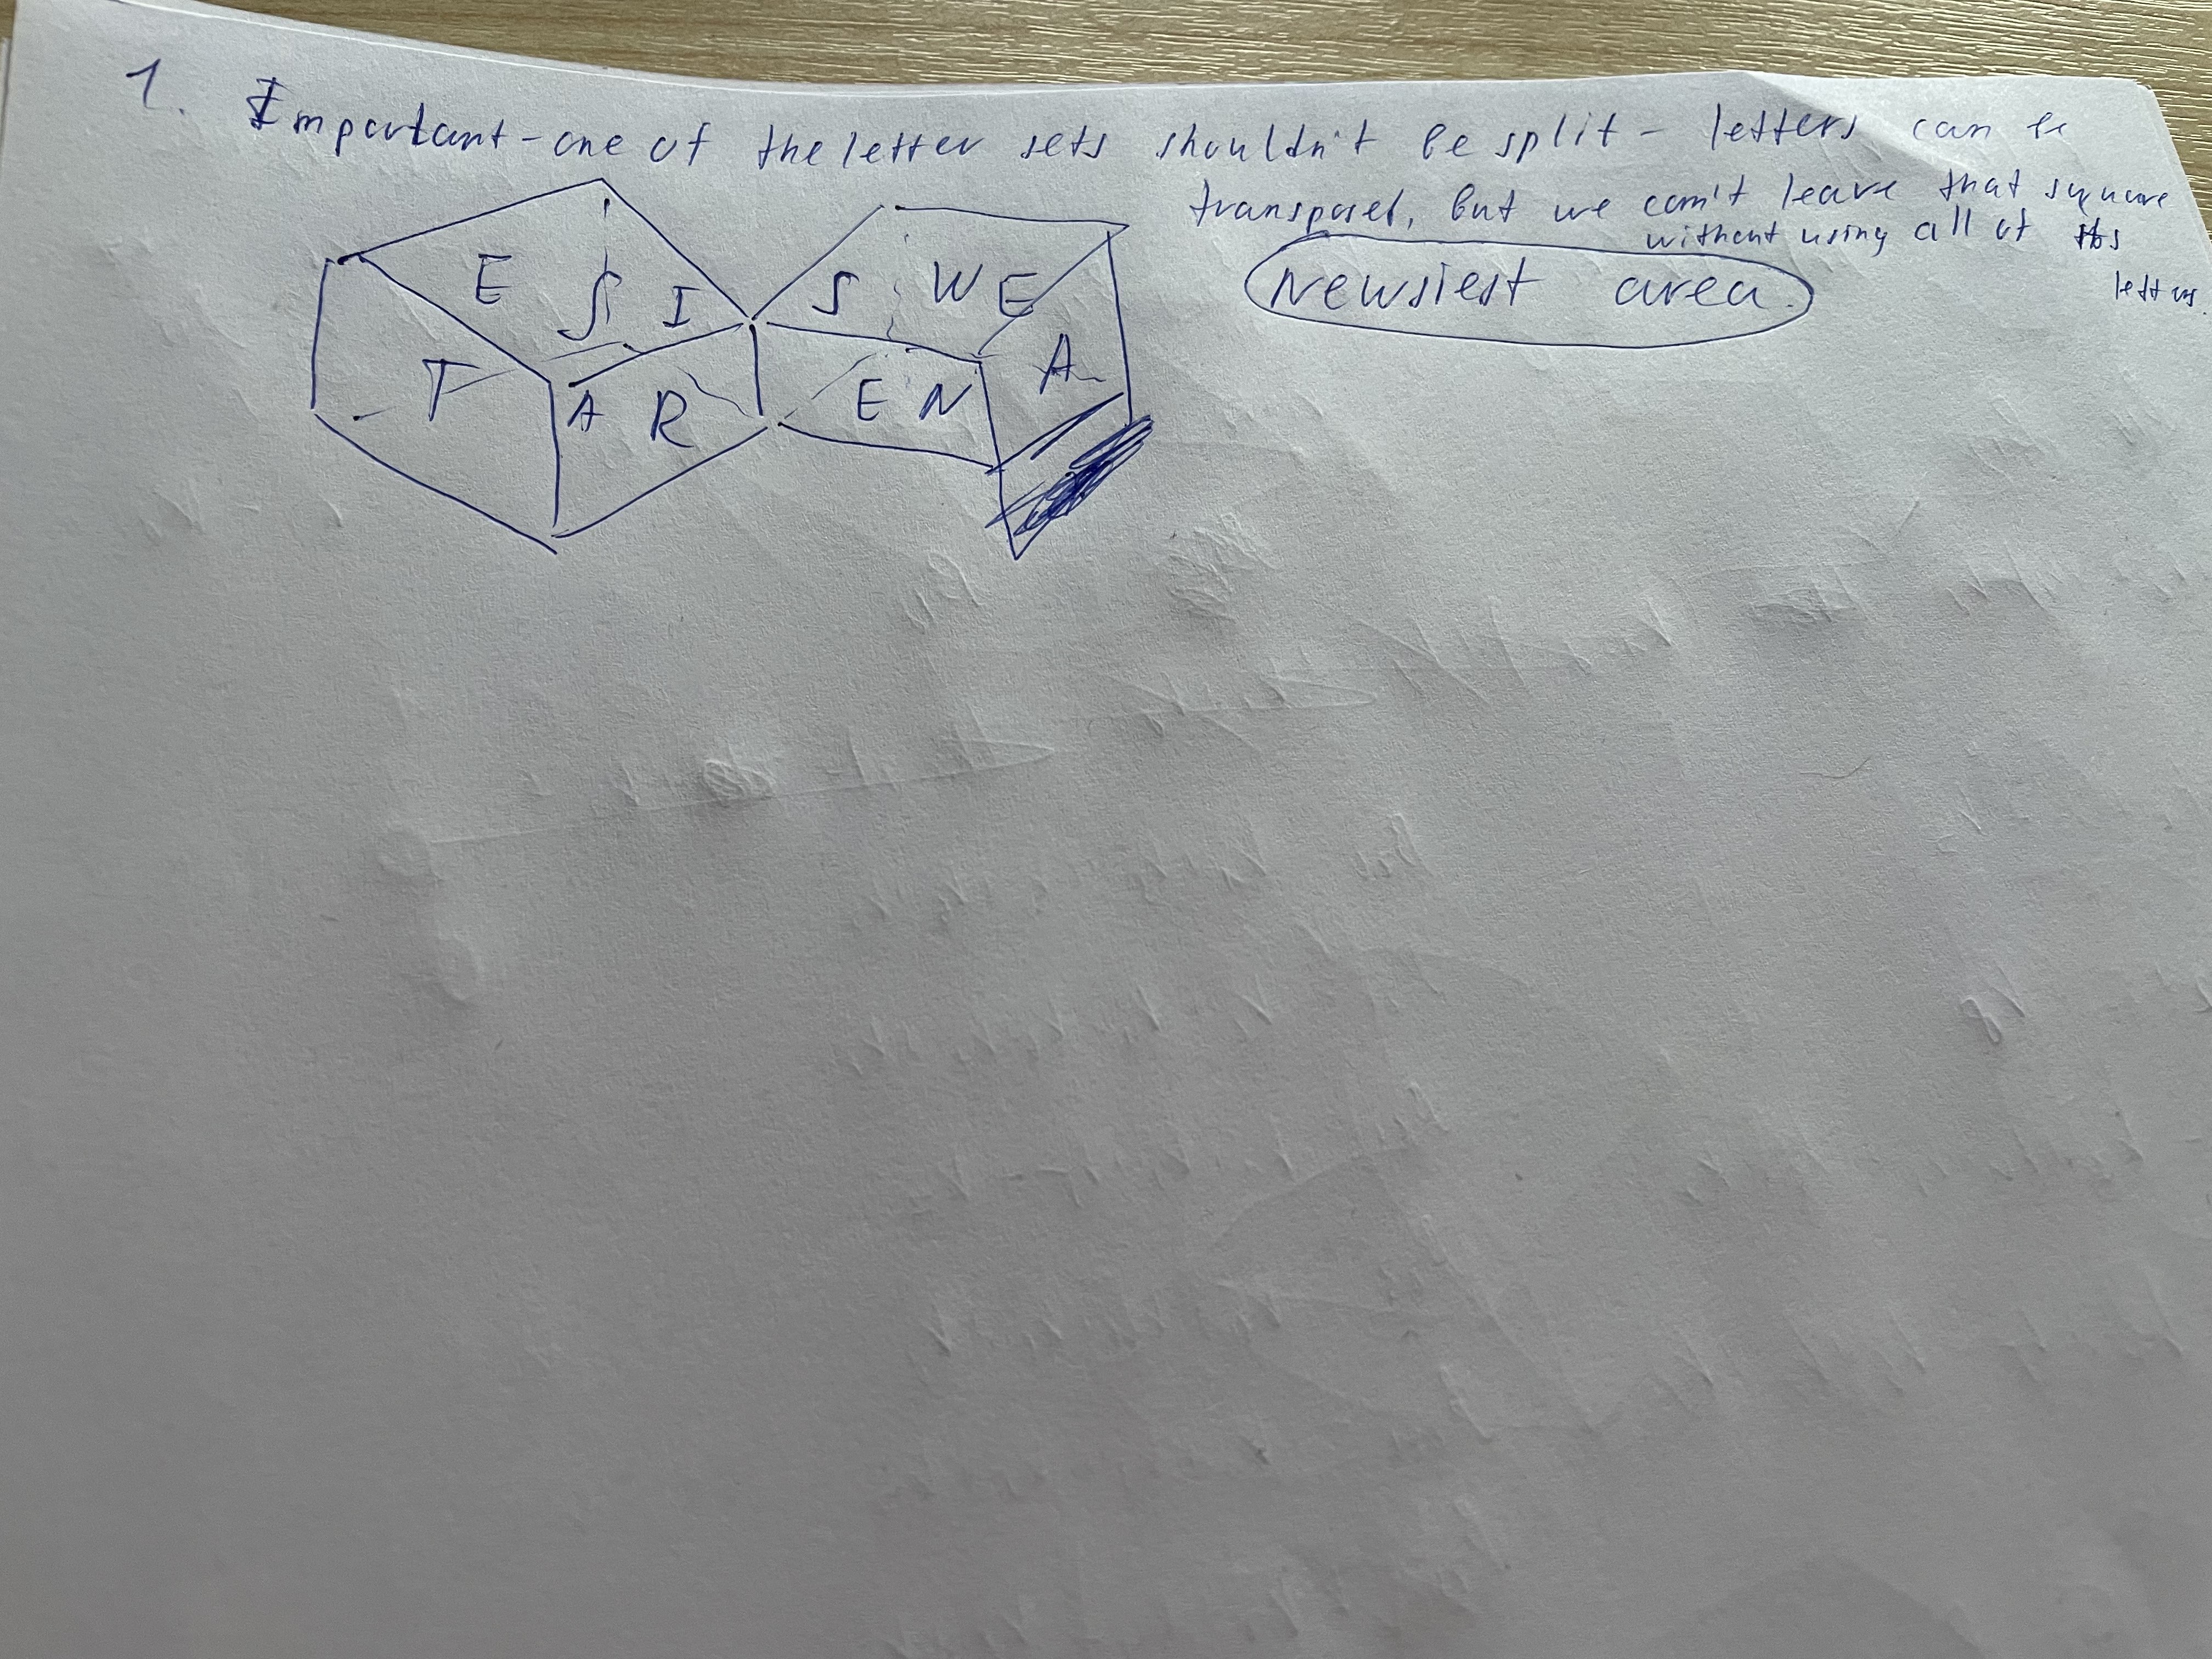 1. Important - one of the letter sets shouldn't be split - letters can be
transposed, but we can't leave that square
without using all of its
letters.
Newsiest area.
E S I S W E
T A R E N A